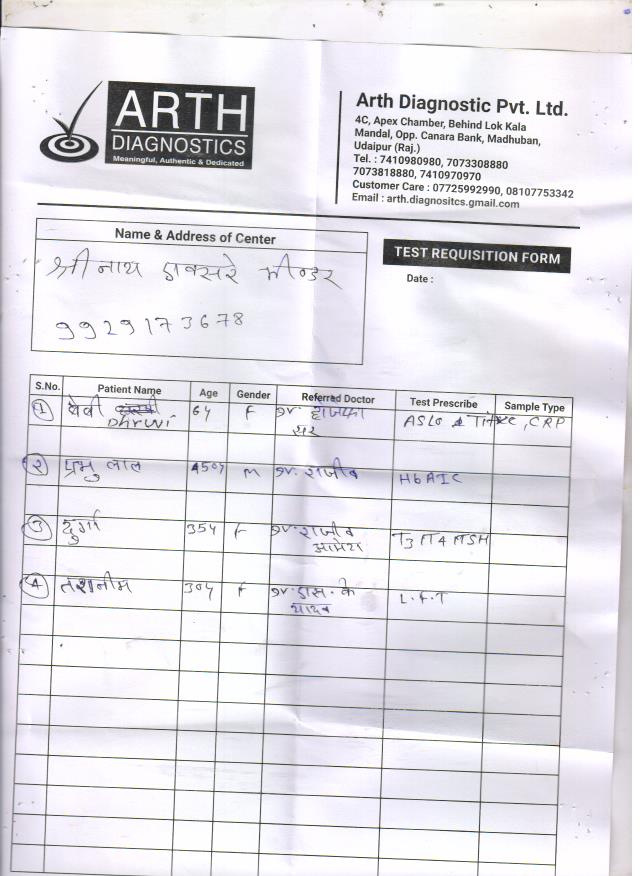 ARTH
DIAGNOSTICS
Meaningful, Authentic & Dedicated
Arth Diagnostic Pvt. Ltd.
4C, Apex Chamber, Behind Lok Kala
Mandal, Opp. Canara Bank, Madhuban,
Udaipur (Raj.)
Tel. : 7410980980, 7073308880
7073818880, 7410970970
Customer Care : 07725992990, 08107753342
Email : arth.diagnositcs.gmail.com
Name & Address of Center
श्री नाथ इक्सरे भीन्डर
9929173678
TEST REQUISITION FORM
Date :
S.No. Patient Name Age Gender Referred Doctor Test Prescribe Sample Type
1 बेबी 6Y F Dr. ASLO Titre, CRP
Dhruvi सर
२ प्रभु लाल 450Y M Dr. राजीव HbA1C
3 दुर्गा 35Y F Dr. राजीव T3 T4 TSH
आमेटा
4 तशनीम 30Y F Dr. डास. के L.F.T
यादव